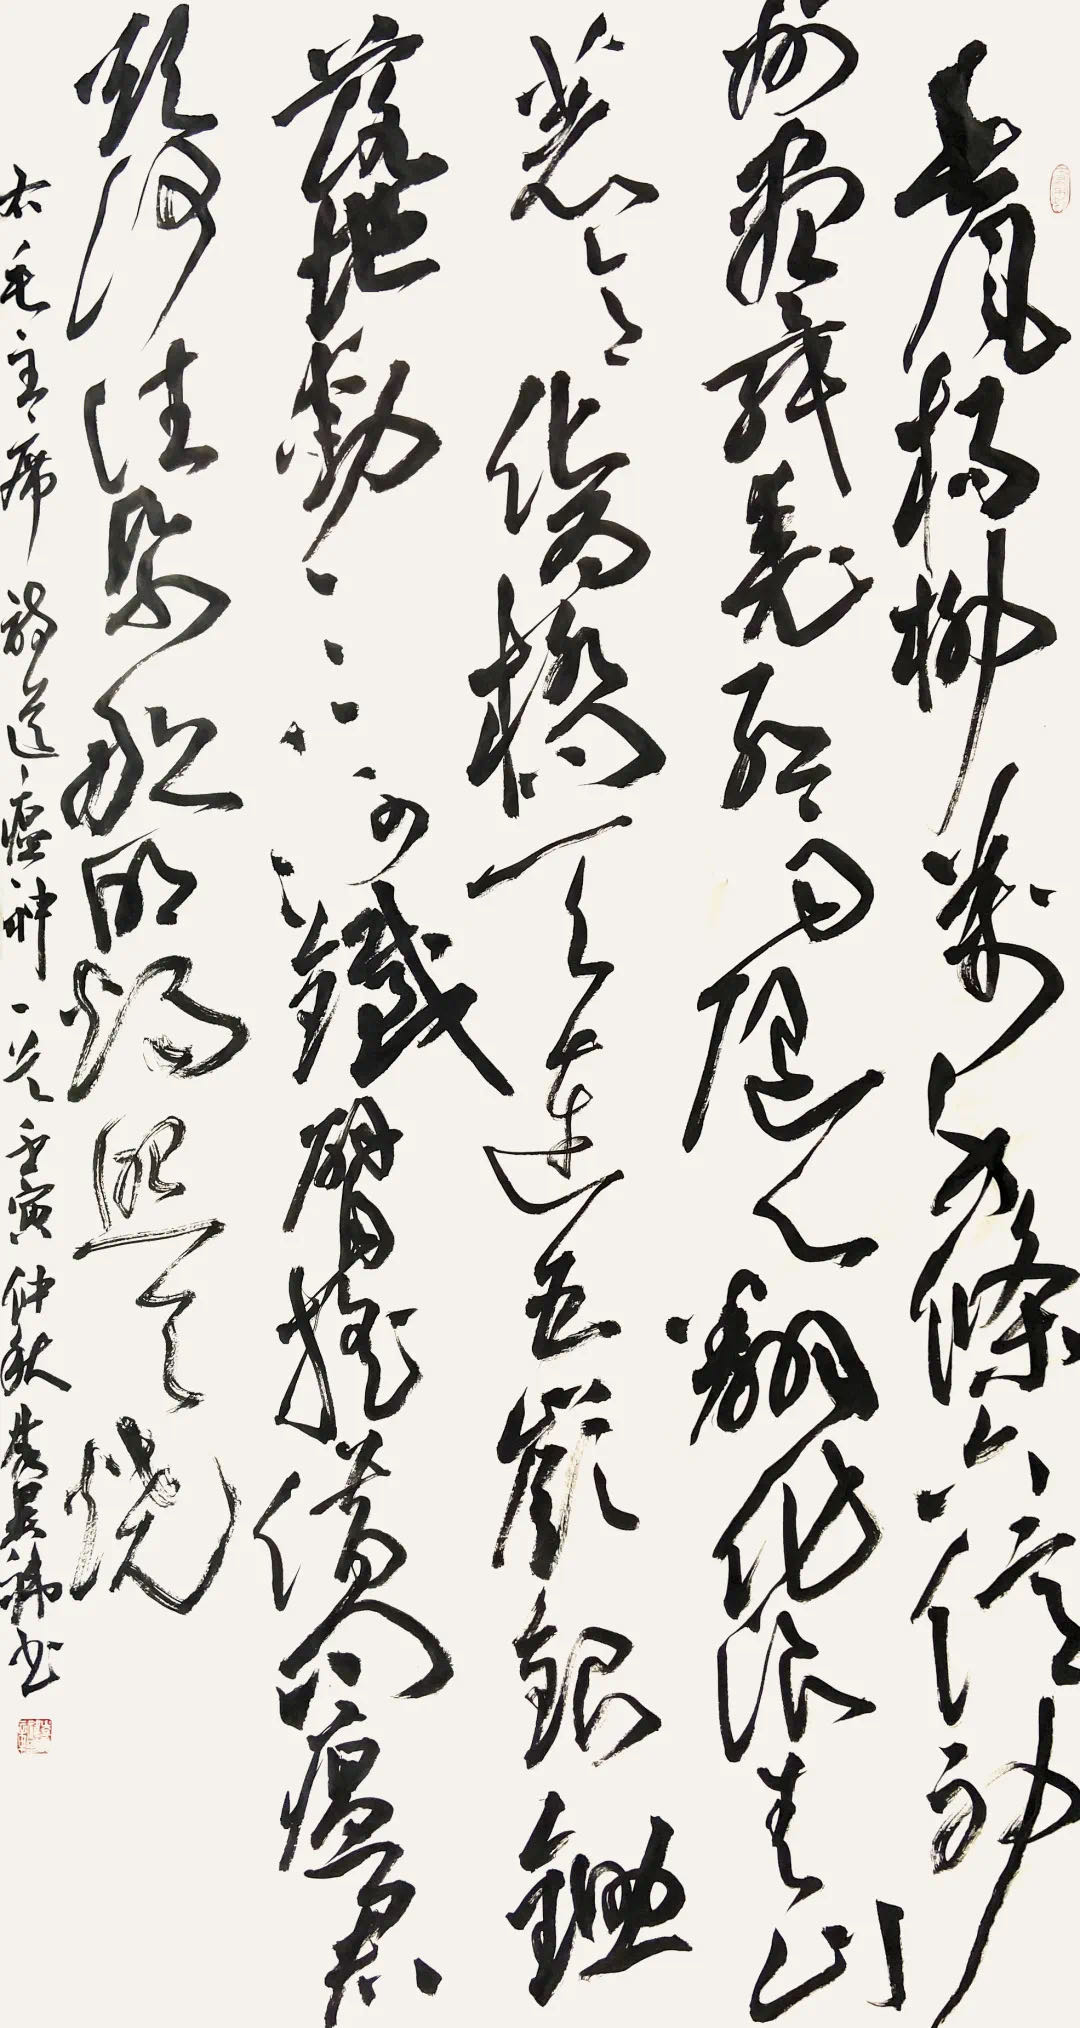 春風楊柳萬千條六億神
州盡舜堯紅雨隨心翻作浪青山
著意化為橋天連五嶺銀鋤
落地動三河鐵臂搖借問瘟君
欲何往紙船明燭照天燒
右毛主席詩送瘟神一首壬寅仲秋書